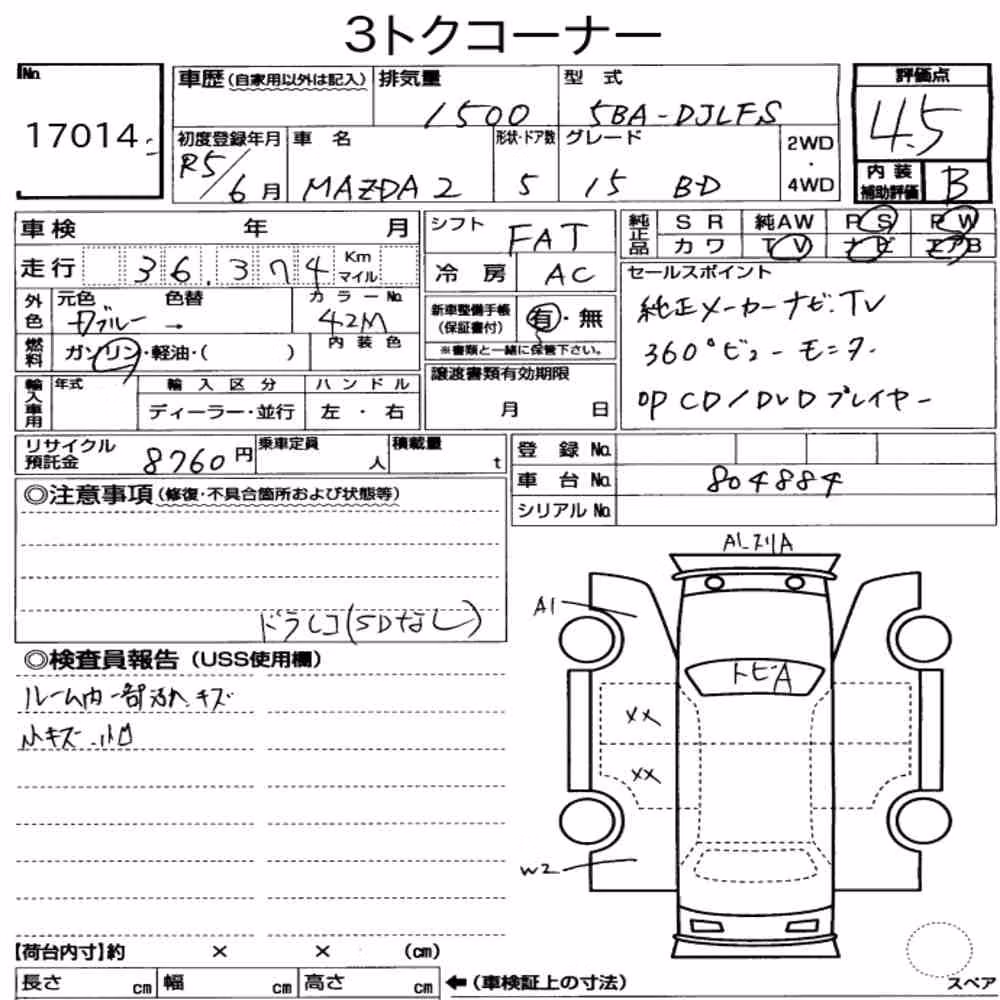 3トクコーナー
No. 17014
車歴 (自家用以外は記入) 排気量 1500 型式 5BA-DJLFS 評価点 4.5
初度登録年月 R5/6月 車名 MAZDA 2 形状・ドア数 5 グレード 15 BD 2WD・4WD 内装補助評価 B
車検 年 月 シフト FAT 純正品 SR 純AW PS PW
カワ TV ナビ エアB
走行 36,374 Km マイル 冷房 AC
外色 元色 ブルー 色替 → カラーNo. 42M
新車整備手帳 (保証書付) 有・無
※書類と一緒に保管下さい。
セールスポイント
純正メーカーナビ.TV
360°ビューモニター
OP CD/DVDプレイヤー
燃料 ガソリン・軽油・( ) 内装色
輸入車用 年式 輸入区分 ハンドル
ディーラー・並行 左・右
譲渡書類有効期限
月 日
リサイクル預託金 8760円 乗車定員 人 積載量 t
登録No.
車台No. 804884
シリアルNo.
◎注意事項 (修復・不具合箇所および状態等)
ドラレコ(SDなし)
◎検査員報告 (USS使用欄)
ルーム内一部汚れ キズ
小キズ.小凹
A1
トビA
XX
XX
W2
【荷台内寸】約 × × (cm)
長さ cm 幅 cm 高さ cm ←(車検証上の寸法)
スペア